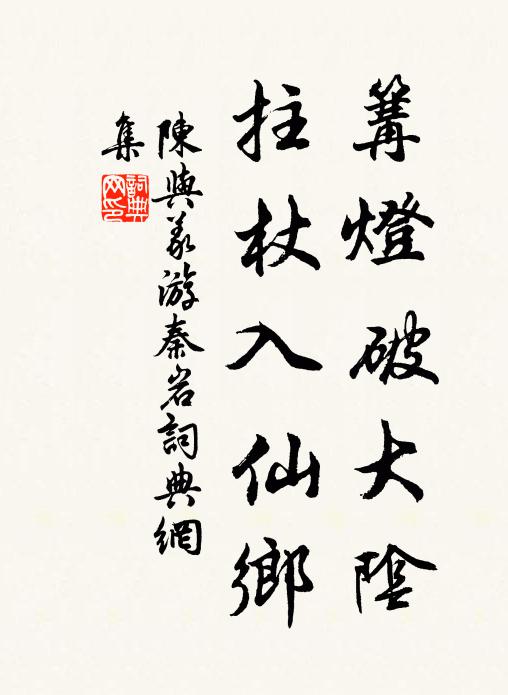 篝燈破大陰
拄杖入仙鄉
陳與義游秦岩詞典網
集
詞典網印